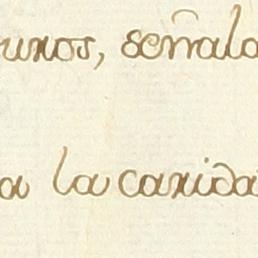 unos, señala
a la carida